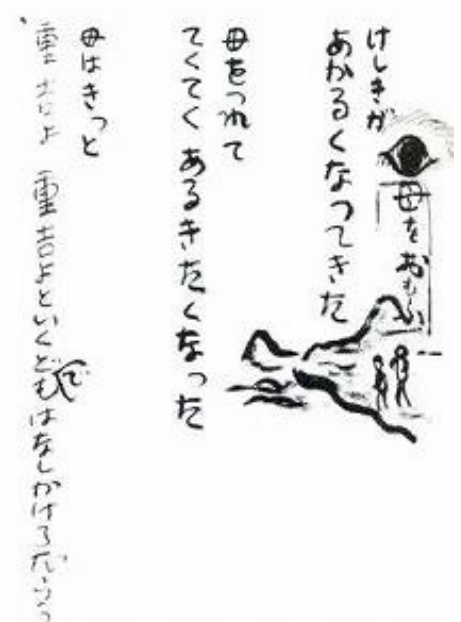 母をおもい
けしきが
あかるくなってきた
母をつれて
てくてくあるきたくなった
母はきっと
重吉よ 重吉よといくどでもはなしかけるだろう